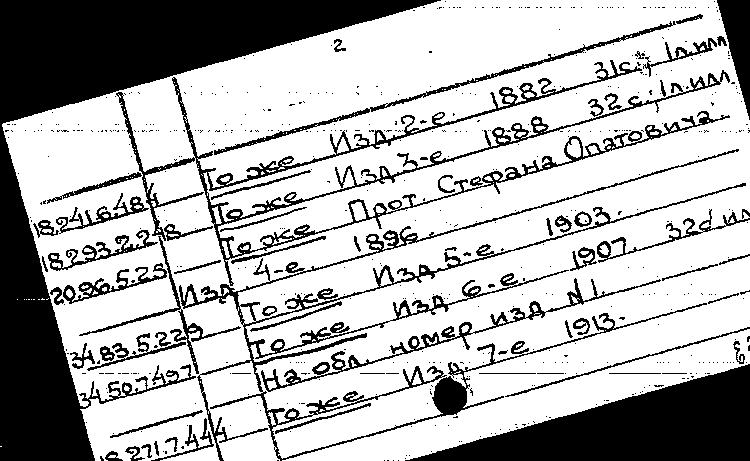 2
18.241.6.484 То же. Изд. 2-е. 1882. 31с.; 1л.илл
18.293.2.248 То же. Изд. 3-е. 1888 32с.; 1л.илл.
20.96.5.25 То же Прот. Стефана Опатовича.
Изд. 4-е. 1896.
34.83.5.229 То же Изд. 5-е. 1903.
34.50.7.497 То же. Изд. 6-е. 1907. 32с. ил
На обл. номер изд. N 1.
18.271.7.444 То же. Изд. 7-е 1913.